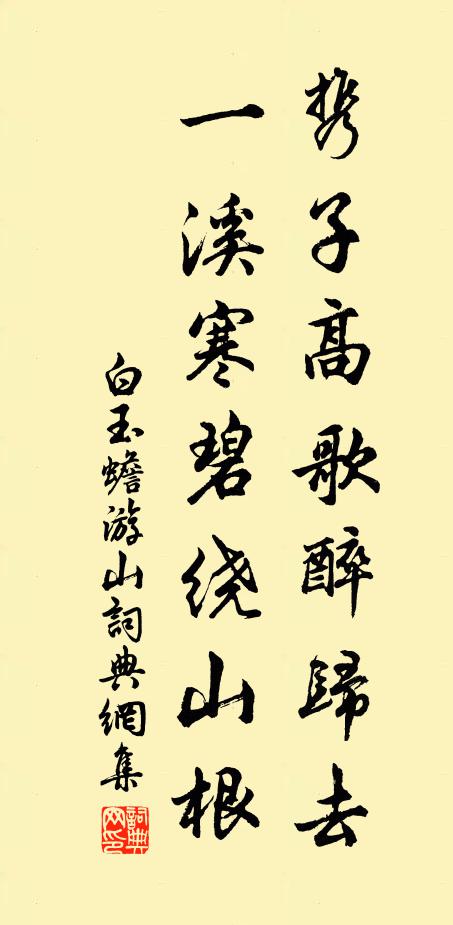 携子高歌醉歸去
一溪寒碧绕山根
白玉蟾游山詞典網集
詞典網印